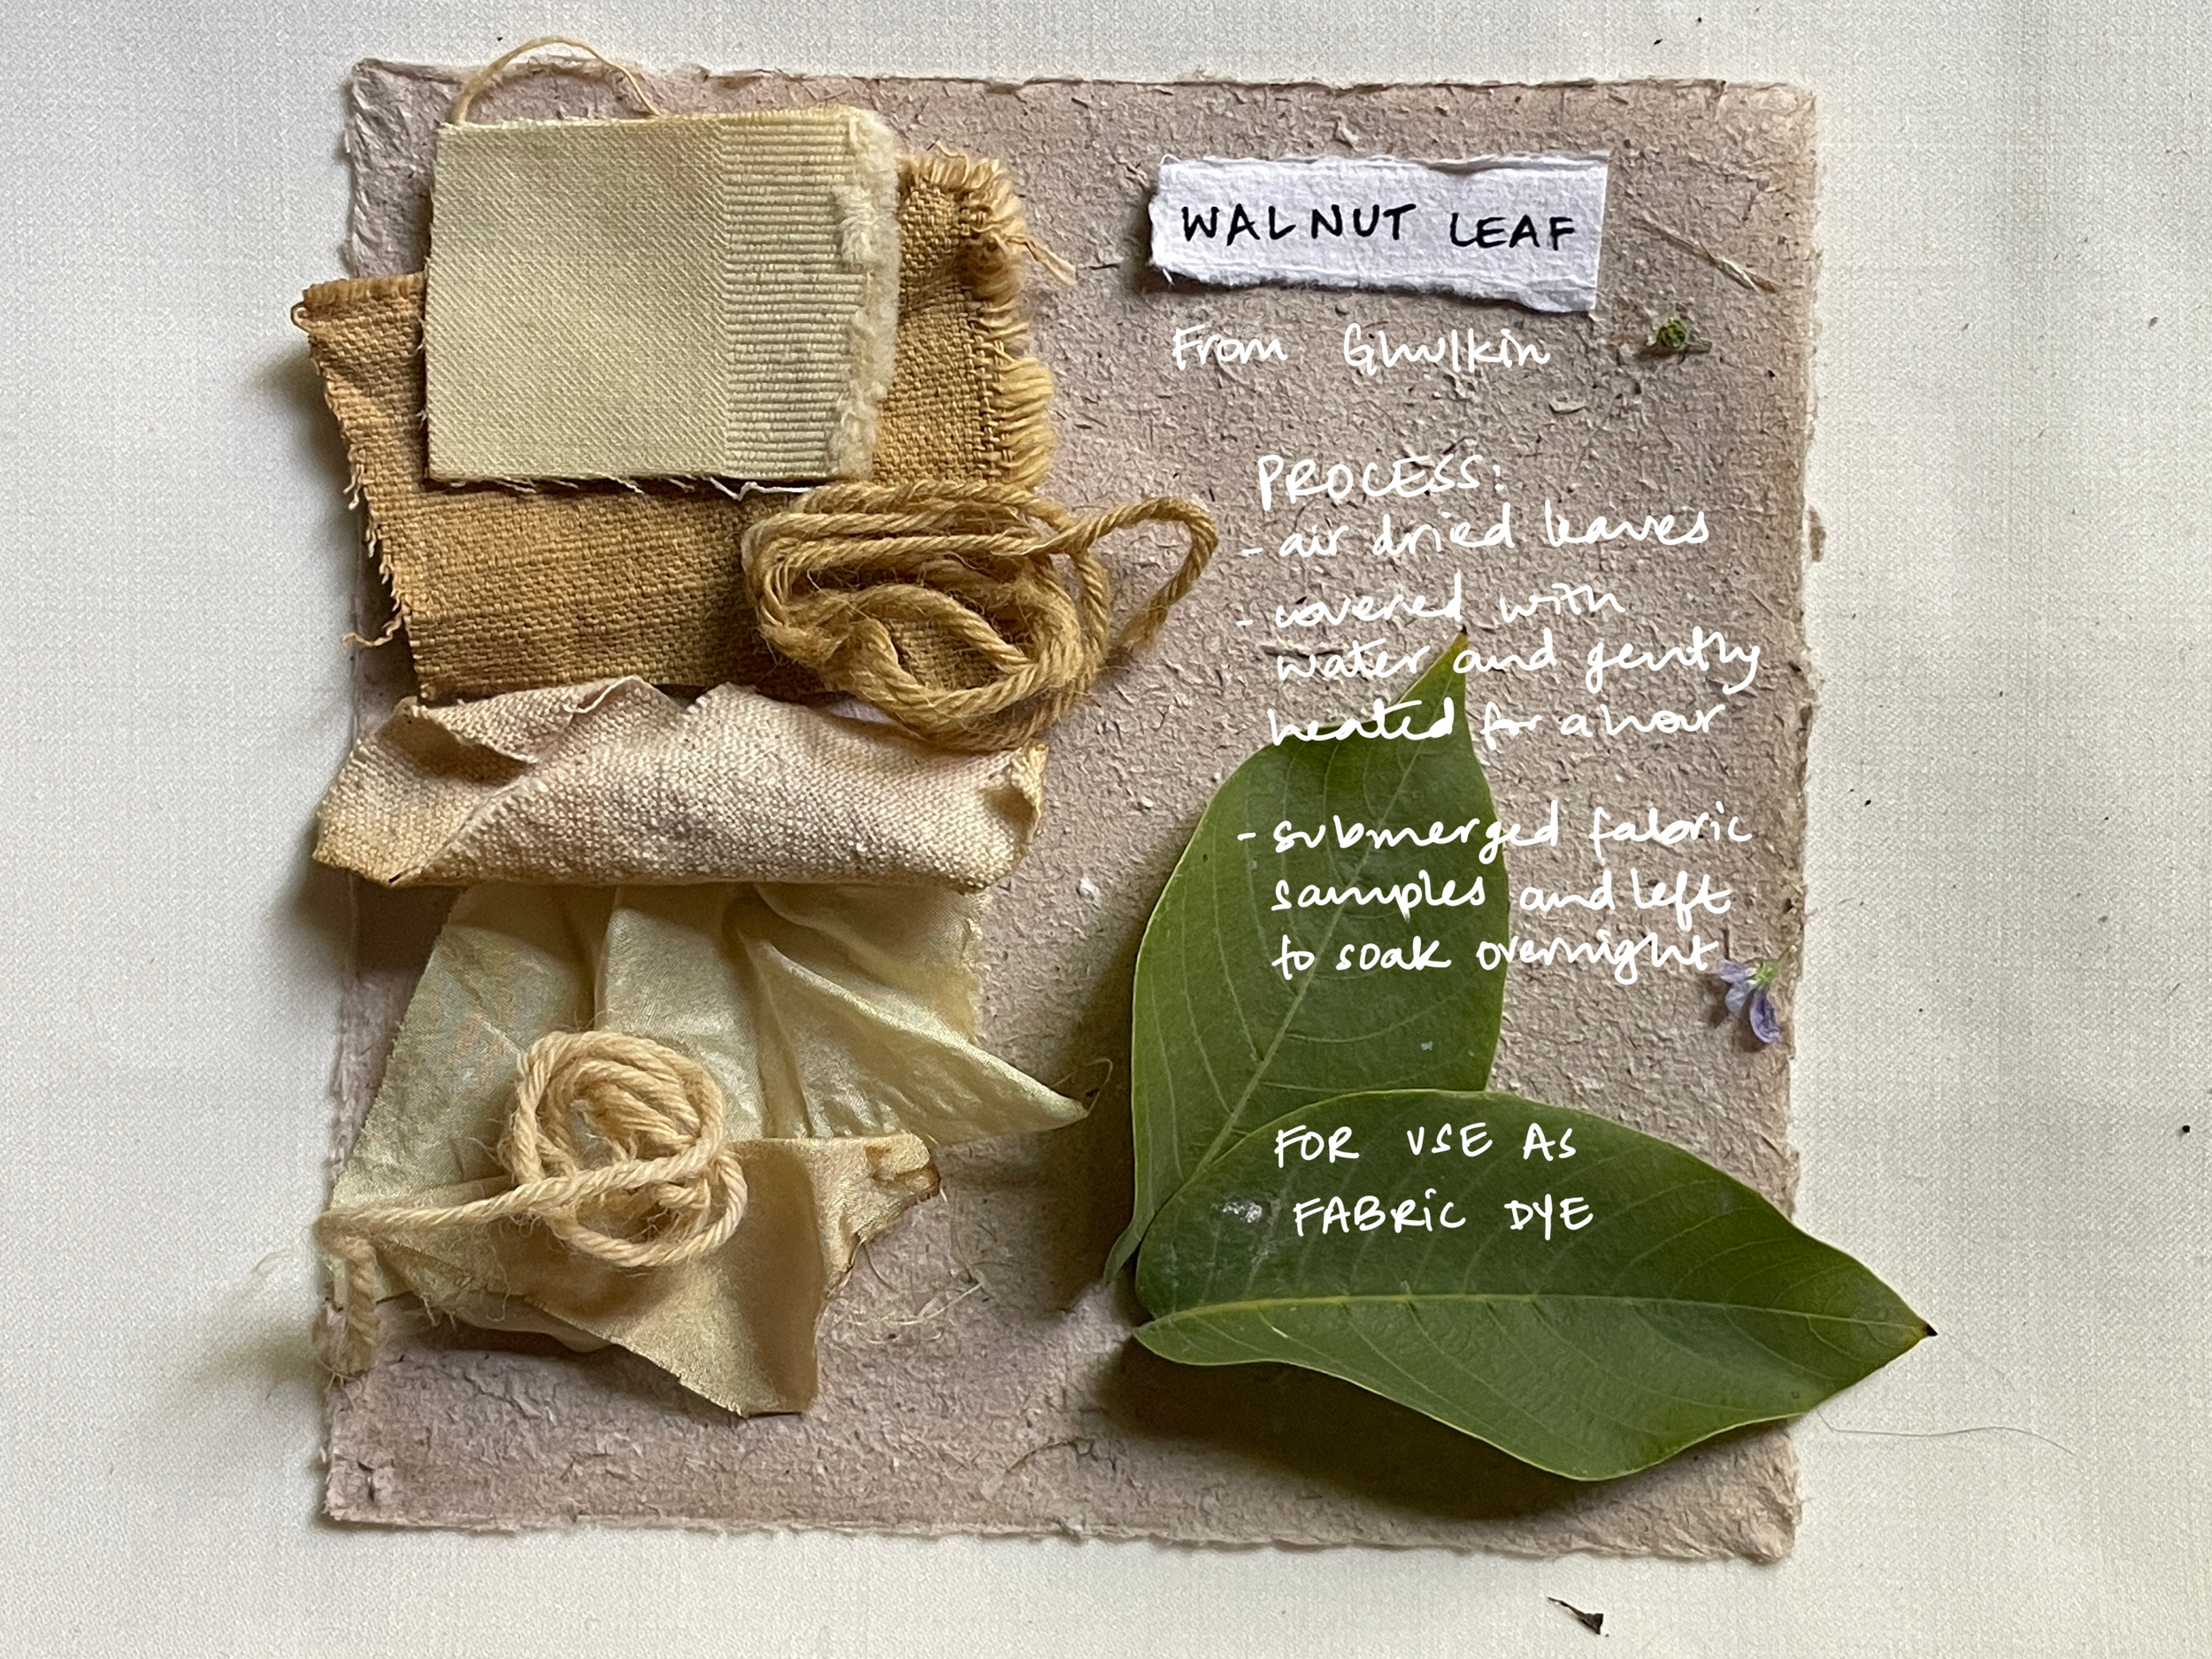 WALNUT LEAF
From Ghulkin
PROCESS:
- air dried leaves
- covered with
water and gently
heated for a hour
- submerged fabric
samples and left
to soak overnight
FOR USE AS
FABRIC DYE